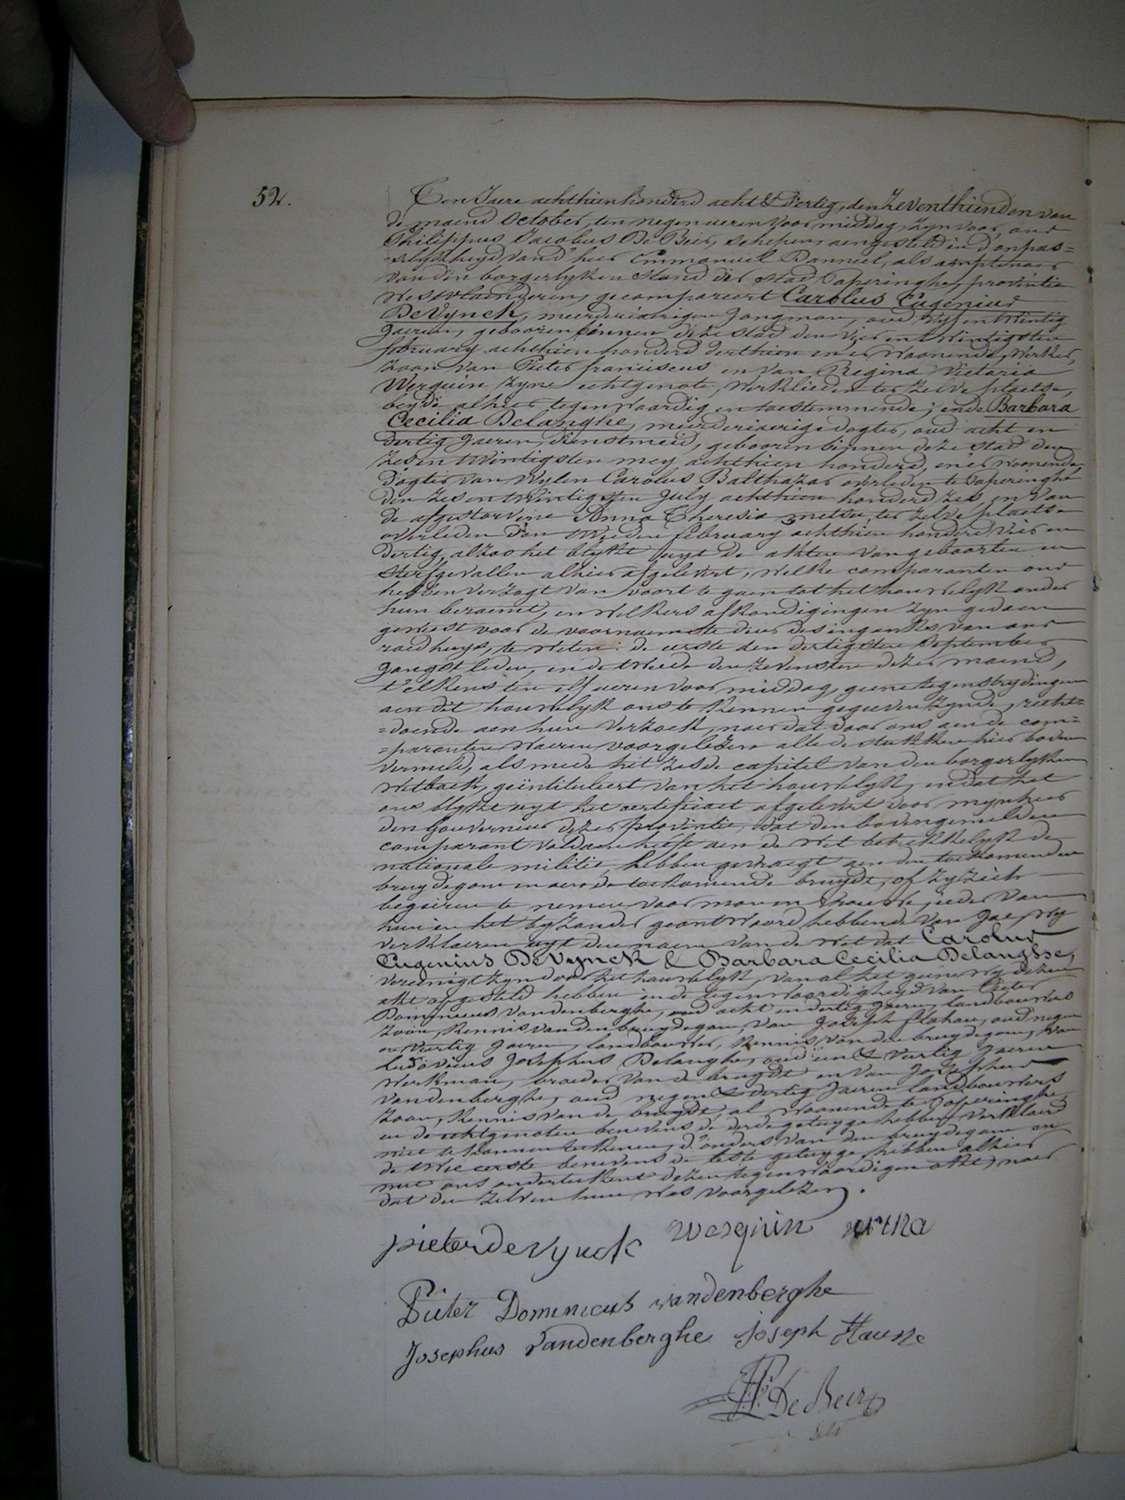 52.
Ten Jaere achthien honderd acht & dertig, den Zeventhienden van
de maend October, ten negen ueren voor middag, zyn voor ons
Philippus Jacobus De Beir, schepen, aengesteld in d'onpas=
=selykheyd van d'heer Emmanuel Panneel, als amptenaer
van den borgerlyken Stand der Stad Poperinghe, provintie
Westvlaenderen, gecompareert Carolus Eugenius
DeVynck, meerderjarigen Jongman, oud vyf en twintig
Jaeren, gebooren binnen deze stad den vier en twintigsten
february achthien honderd derthien en er woonende, werker,
zoon van Pieter franciscus en van Regina Victoria
Werquin zyne echtgenote, werklieden ter zelve plaetse,
beyde alhier tegenwoordig en toestemmende; ende Barbara
Cecilia Delanghe, meerderjarige dogter, oud acht en
dertig Jaeren, dienstmeid, gebooren binnen deze stad den
zeven twintigsten mey achthien honderd, en er woonende,
dogter van wylen Carolus Balthazar overleden te Poperinghe
den zes en twintigsten July achthien honderd zes en van
de afgestorvene Anna Theresia mette, ter zelve plaetse
overleden den tweeden february achthien honderd vier en
dertig, alzoo het blykt uyt de akten van geboorten en
sterfgevallen alhier afgelevert; welke comparanten ons
hebben verzogt van voort te gaen tot het houwelyk onder
hun beraemt, en welkers afkondigingen zyn gedaen
geweest voor de voornaemste deur des ingank van ons
raedhuys, te weten: de eerste den dertigsten September
Jongst leden, en de tweede den zevensten dezer maend,
t'elkens ten elf ueren voor middag, geene tegenstrydingen
aen dit houwelyk ons te kennen gegeven zynde, recht=
=doende aen hun verzoek, naer dat door ons aen de com=
=paranten waeren voorgelezen alle de stukken hier boven
vermeld, als mede het zesde capitel van den borgerlyken
wetboek, geintituleert van het houwelyk, en dat het
ons blykt uyt het certificaet afgelevert door mynheer
den Gouverneur dezer provintie, dat den bovengemelden
comparant voldaen heeft aen de wet betrekkelyk de
nationale militie, hebben gevraegt aen den toekomenden
bruydegom en aen de toekomende bruydt, of zy zich
begeeren te nemen voor man en vrouw; ieder van
hun in het byzonder geantwoord hebbende van Jae, wy
verklaeren uyt den naem van de wet dat Carolus
Eugenius DeVynck & Barbara Cecilia Delanghe,
vereenigt zyn door het houwelyk, van al het geene wy dezen
akt opgesteld hebben in de tegenwoordigheyd van Pieter
Dominicus Vandenberghe, oud acht en dertig Jaeren, landbouwers
zoon, kennis van den bruydegom, van Joseph Flahou, oud negen
en veertig Jaeren, landbouwer, kennis van den bruydegom, van
Ludovicus Josephus Delanghe, oud een & veertig Jaeren
werkman, broeder van de bruydt en van Josephus
Vandenberghe, oud negen & dertig Jaeren landbouwers
zoon, kennis van de bruydt, al woonende te Poperinghe,
en de echtgenoten benevens de derde getuyge hebben verklaerd
niet te konnen teekenen, d'ouders van den bruydegom en
de twee eerste benevens de leste getuyge hebben alhier
met ons onderteekent dezen tegenwoordigen akt, naer
dat den zelven hun was voorgelezen.
pieter de vynck werquin
Pieter Dominicus vandenberghe
Josephus Vandenberghe Joseph
Ph. De Beir